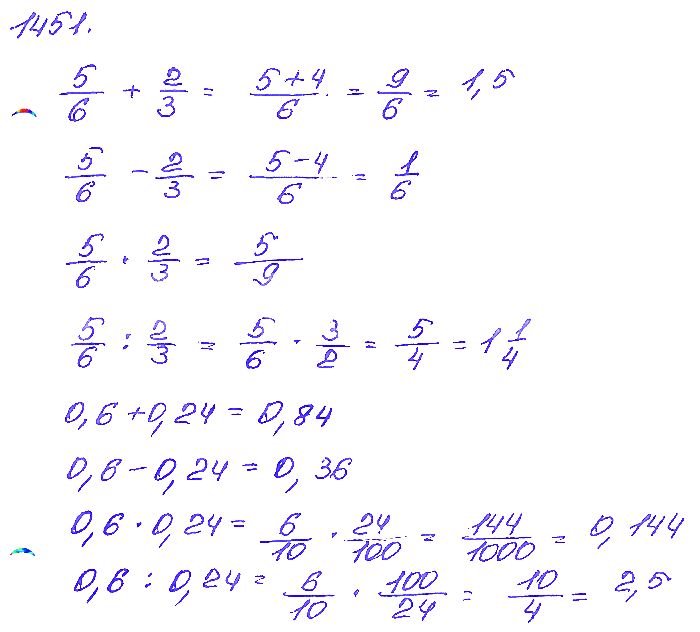 1451.
5/6 + 2/3 = (5+4)/6 = 9/6 = 1,5
5/6 - 2/3 = (5-4)/6 = 1/6
5/6 · 2/3 = 5/9
5/6 : 2/3 = 5/6 · 3/2 = 5/4 = 1 1/4
0,6+0,24=0,84
0,6-0,24=0,36
0,6·0,24= 6/10 · 24/100 = 144/1000 = 0,144
0,6 : 0,24= 6/10 · 100/24 = 10/4 = 2,5